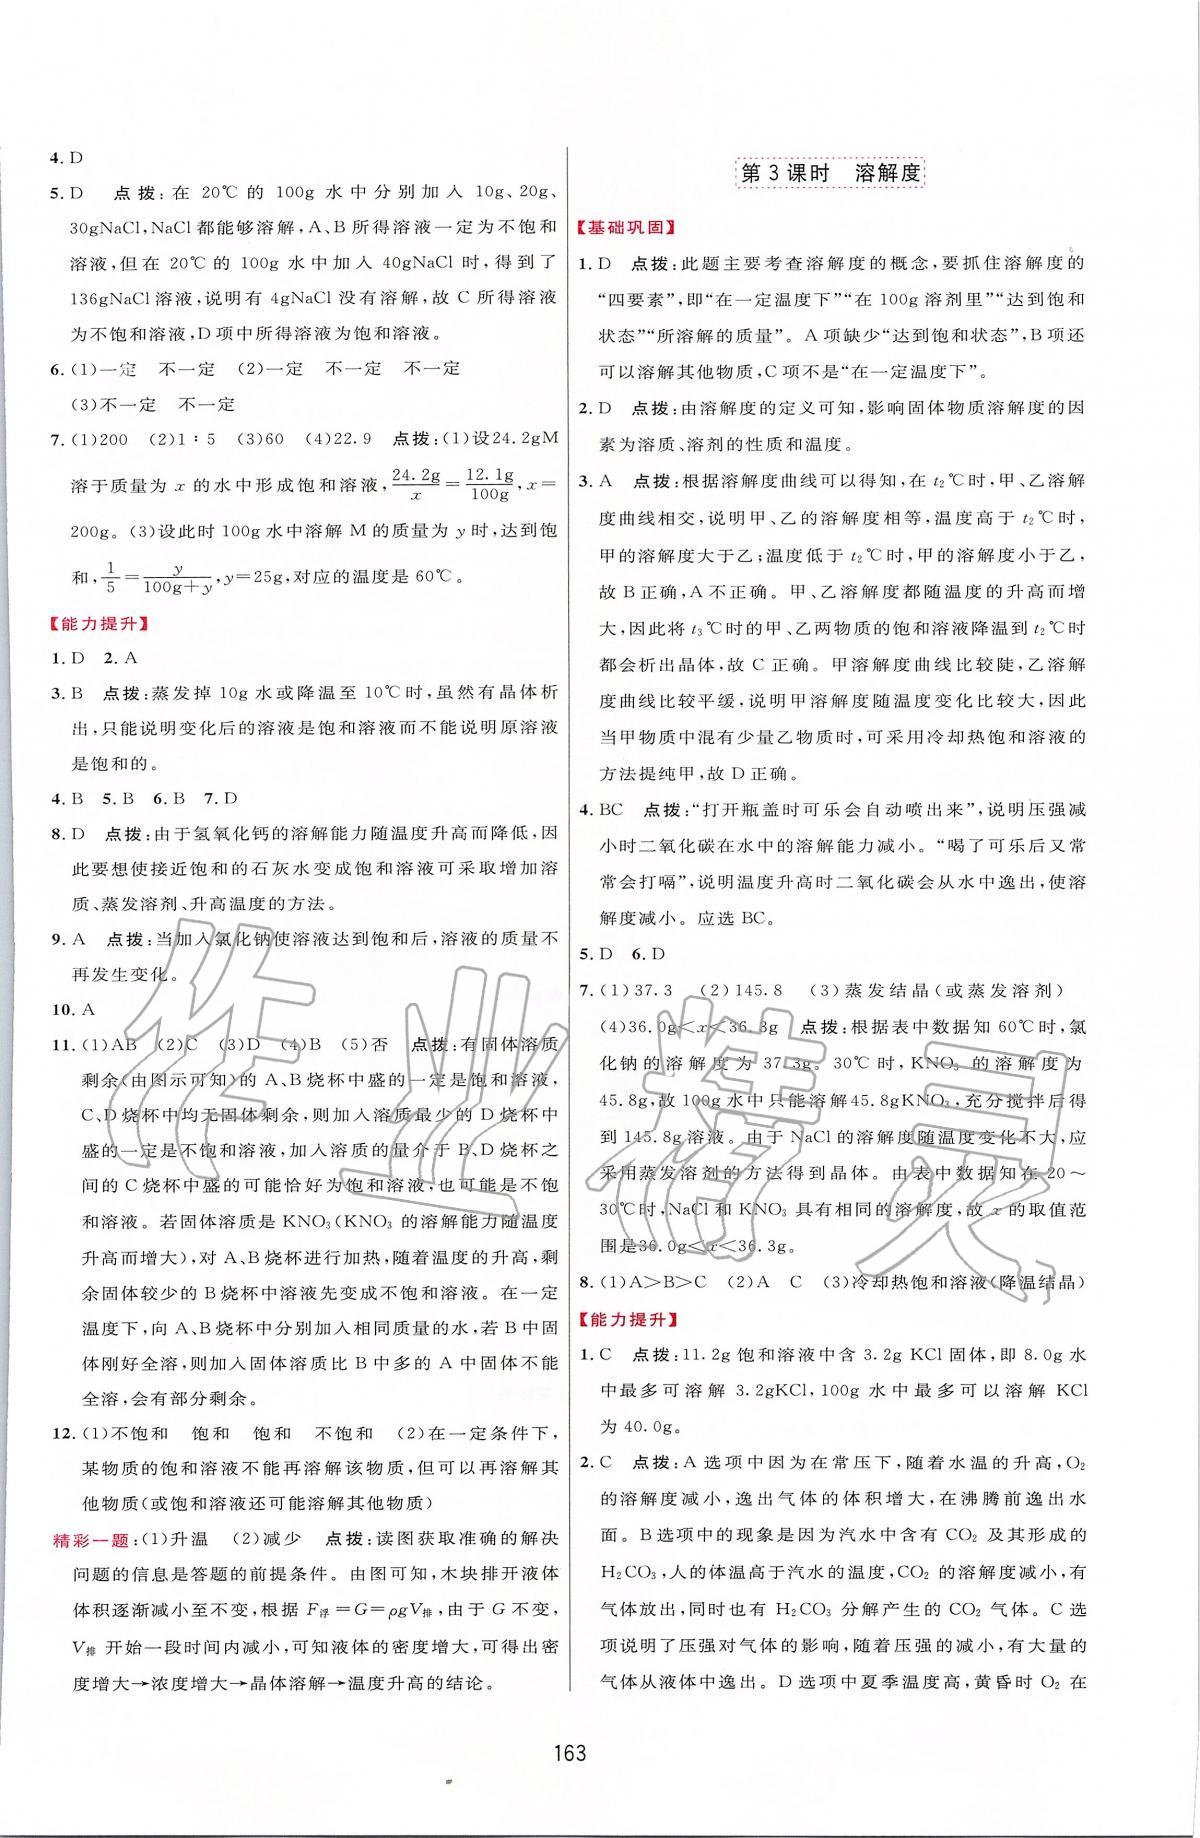 4. D
5. D　点拨:在 20℃ 的 100g 水中分别加入 10g、20g、
30gNaCl,NaCl都能够溶解,A、B所得溶液一定为不饱和
溶液,但在 20℃ 的 100g 水中加入 40gNaCl 时,得到了
136gNaCl溶液,说明有 4gNaCl 没有溶解,故 C 所得溶液
为不饱和溶液,D项中所得溶液为饱和溶液。
6. (1)一定　不一定　(2)一定　不一定　不一定
(3)不一定　不一定
7. (1)200　(2)1∶5　(3)60　(4)22.9　点拨:(1)设24.2gM
溶于质量为 x 的水中形成饱和溶液,24.2g/x=12.1g/100g,x=
200g。(3)设此时 100g 水中溶解 M 的质量为 y 时,达到饱
和,1/5=y/(100g+y),y=25g,对应的温度是 60℃。
【能力提升】
1. D　2. A
3. B　点拨:蒸发掉 10g 水或降温至 10℃时,虽然有晶体析
出,只能说明变化后的溶液是饱和溶液而不能说明原溶液
是饱和的。
4. B　5. B　6. B　7. D
8. D　点拨:由于氢氧化钙的溶解能力随温度升高而降低,因
此要想使接近饱和的石灰水变成饱和溶液可采取增加溶
质、蒸发溶剂、升高温度的方法。
9. A　点拨:当加入氯化钠使溶液达到饱和后,溶液的质量不
再发生变化。
10. A
11. (1)AB　(2)C　(3)D　(4)B　(5)否　点拨:有固体溶质
剩余(由图示可知)的 A、B烧杯中盛的一定是饱和溶液,
C、D烧杯中均无固体剩余,则加入溶质最少的 D烧杯中
盛的一定是不饱和溶液,加入溶质的量介于 B、D烧杯之
间的 C烧杯中盛的可能恰好为饱和溶液,也可能是不饱
和溶液。若固体溶质是 KNO₃(KNO₃ 的溶解能力随温度
升高而增大),对 A、B烧杯进行加热,随着温度的升高,剩
余固体较少的 B烧杯中溶液先变成不饱和溶液。在一定
温度下,向 A、B烧杯中分别加入相同质量的水,若 B中固
体刚好全溶,则加入固体溶质比 B 中多的 A 中固体不能
全溶,会有部分剩余。
12. (1)不饱和　饱和　饱和　不饱和　(2)在一定条件下,
某物质的饱和溶液不能再溶解该物质,但可以再溶解其
他物质(或饱和溶液还可能溶解其他物质)
精彩一题:(1)升温　(2)减少　点拨:读图获取准确的解决
问题的信息是答题的前提条件。由图可知,木块排开液体
体积逐渐减小至不变,根据 F浮=G=ρgV排,由于 G 不变,
V排 开始一段时间内减小,可知液体的密度增大,可得出密
度增大→浓度增大→晶体溶解→温度升高的结论。
第 3 课时　溶解度
【基础巩固】
1. D　点拨:此题主要考查溶解度的概念,要抓住溶解度的
“四要素”,即“在一定温度下”“在 100g 溶剂里”“达到饱和
状态”“所溶解的质量”。A 项缺少“达到饱和状态”,B 项还
可以溶解其他物质,C 项不是“在一定温度下”。
2. D　点拨:由溶解度的定义可知,影响固体物质溶解度的因
素为溶质、溶剂的性质和温度。
3. A　点拨:根据溶解度曲线可以得知,在 t₂℃时,甲、乙溶解
度曲线相交,说明甲、乙的溶解度相等,温度高于 t₂℃时,
甲的溶解度大于乙;温度低于 t₂℃时,甲的溶解度小于乙,
故 B正确,A 不正确。甲、乙溶解度都随温度的升高而增
大,因此将 t₃℃时的甲、乙两物质的饱和溶液降温到 t₂℃时
都会析出晶体,故 C 正确。甲溶解度曲线比较陡,乙溶解
度曲线比较平缓,说明甲溶解度随温度变化比较大,因此
当甲物质中混有少量乙物质时,可采用冷却热饱和溶液的
方法提纯甲,故 D 正确。
4. BC　点拨:“打开瓶盖时可乐会自动喷出来”,说明压强减
小时二氧化碳在水中的溶解能力减小。“喝了可乐后又常
常会打嗝”,说明温度升高时二氧化碳会从水中逸出,使溶
解度减小。应选 BC。
5. D　6. D
7. (1)37.3　(2)145.8　(3)蒸发结晶(或蒸发溶剂)
(4)36.0g<x<36.3g　点拨:根据表中数据知 60℃时,氯
化钠的溶解度为 37.3g。30℃时,KNO₃ 的溶解度为
45.8g,故 100g水中只能溶解45.8gKNO₃,充分搅拌后得
到 145.8g 溶液。由于 NaCl 的溶解度随温度变化不大,应
采用蒸发溶剂的方法得到晶体。由表中数据知在 20～
30℃时,NaCl和 KNO₃ 具有相同的溶解度,故 x 的取值范
围是36.0g<x<36.3g。
8. (1)A>B>C　(2)A　C　(3)冷却热饱和溶液(降温结晶)
【能力提升】
1. C　点拨:11.2g 饱和溶液中含 3.2g KCl 固体,即 8.0g 水
中最多可溶解 3.2gKCl,100g 水中最多可以溶解 KCl
为 40.0g。
2. C　点拨:A 选项中因为在常压下,随着水温的升高,O₂
的溶解度减小,逸出气体的体积增大,在沸腾前逸出水
面。B选项中的现象是因为汽水中含有 CO₂ 及其形成的
H₂CO₃,人的体温高于汽水的温度,CO₂ 的溶解度减小,有
气体放出,同时也有 H₂CO₃ 分解产生的 CO₂ 气体。C 选
项说明了压强对气体的影响,随着压强的减小,有大量的
气体从液体中逸出。D 选项中夏季温度高,黄昏时 O₂ 在
163
作业精灵